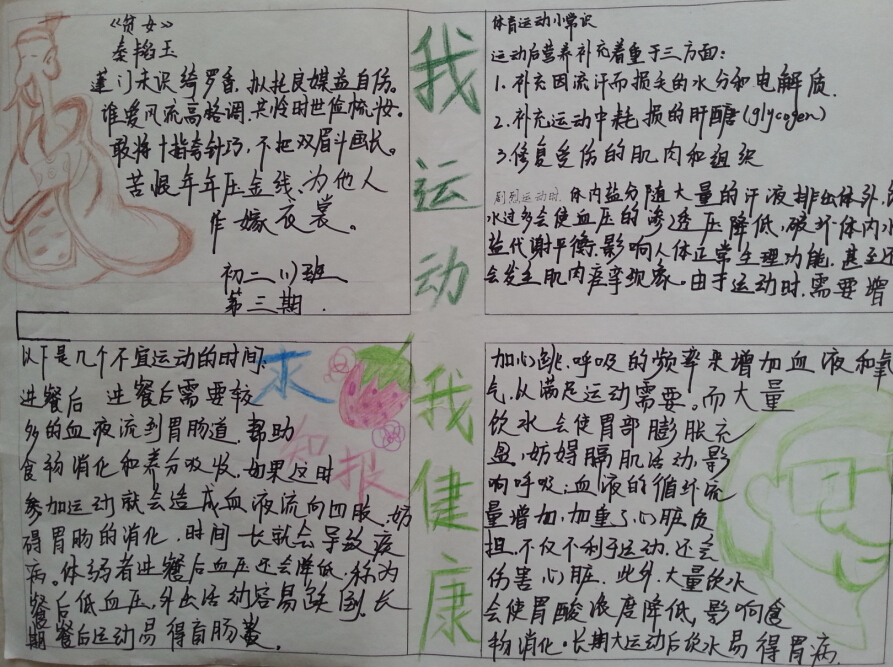 《贫女》
秦韬玉
蓬门未识绮罗香，拟托良媒益自伤。
谁爱风流高格调，共怜时世俭梳妆。
敢将十指夸针巧，不把双眉斗画长。
苦恨年年压金线，为他人
作嫁衣裳。
初二(1)班
第三期
我运动
我健康
体育运动小常识
运动后营养补充着重于三方面：
1.补充因流汗而损失的水分和电解质.
2.补充运动中耗损的肝醣(glycogen)
3.修复受伤的肌肉和组织
剧烈运动时.体内盐分随大量的汗液排出体外,饮
水过多会使血压的渗透压降低,破坏体内水
盐代谢平衡.影响人体正常生理功能.甚至还
会发生肌肉痉挛现象。由于运动时.需要增
以下是几个不宜运动的时间:
进餐后 进餐后需要较
多的血液流到胃肠道.帮助
食物消化和养分吸收.如果这时
参加运动就会造成血液流向四肢.妨
碍胃肠的消化.时间一长就会导致疾
病。体弱者进餐后血压还会降低.称为
餐后低血压,外出活动容易跌倒.长
期餐后运动易得盲肠炎.
求知报
加心跳.呼吸的频率来增加血液和氧
气.从满足运动需要。而大量
饮水会使胃部膨胀充
盈,妨碍膈肌活动,影
响呼吸.血液的循环流
量增加.加重了心脏负
担.不仅不利于运动.还会
伤害心脏.此外.大量饮水
会使胃酸浓度降低,影响食
物消化.长期大运动后饮水易得胃病.